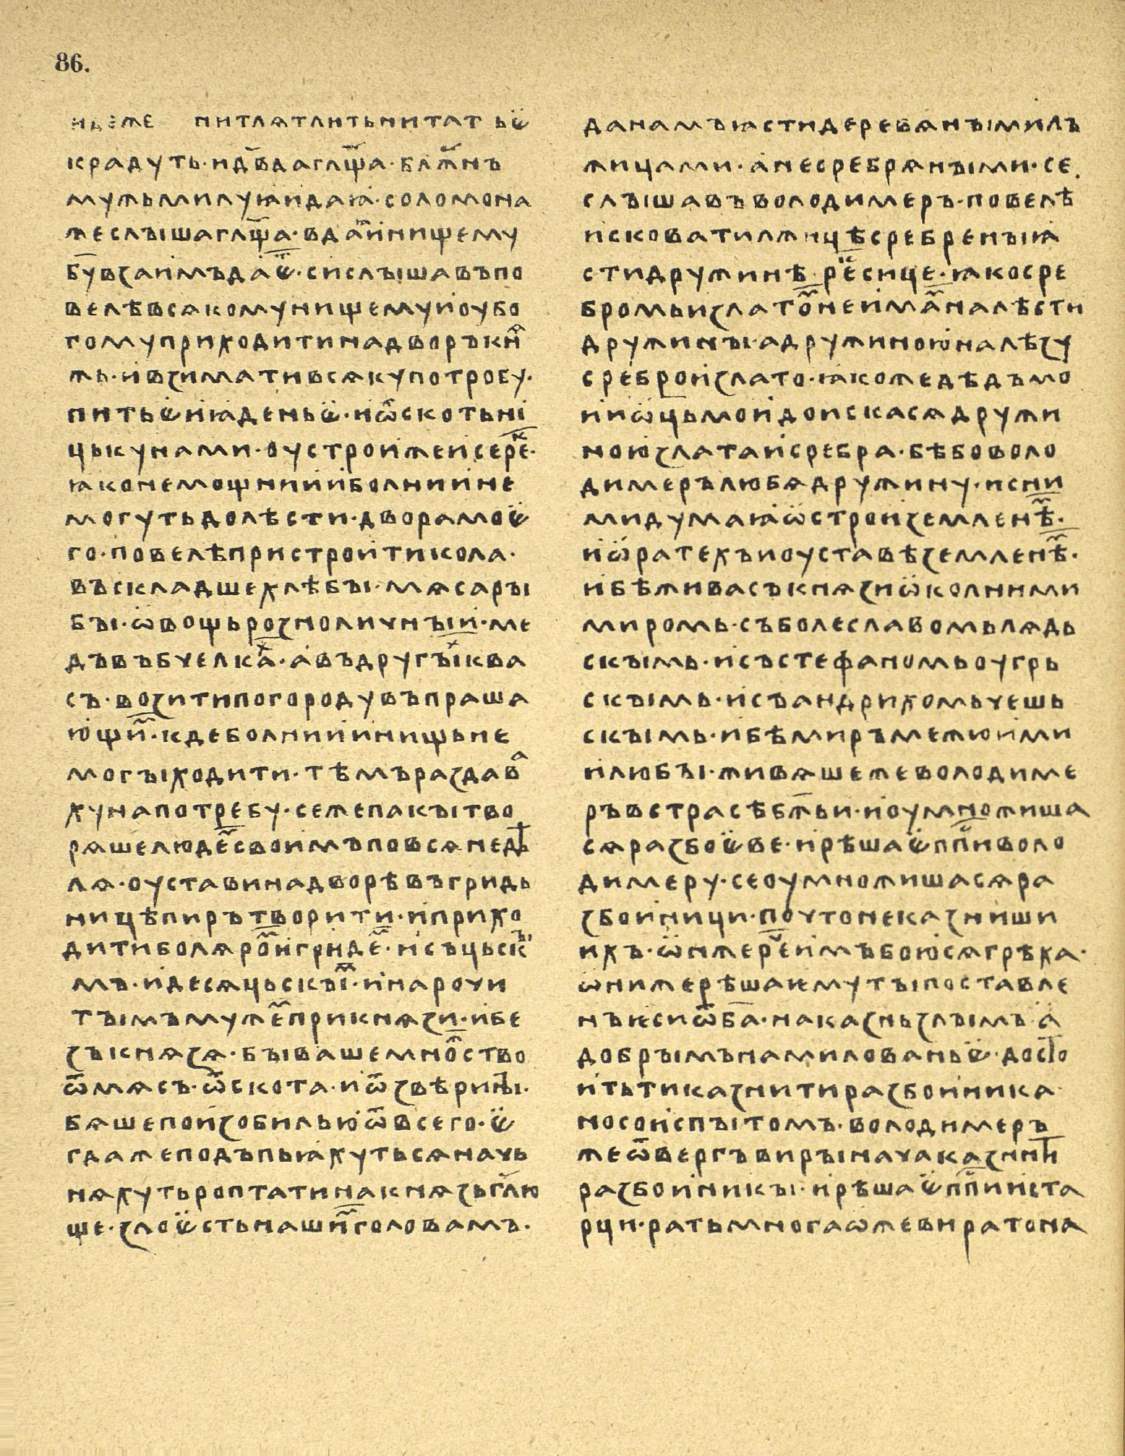 86.
иже нитлятлить нитат ье
крадуть · и дв̃да гл҃ща · бл҃жнъ
мужь милуꙗи даꙗ · соломона
же слыша гл҃ща · вдаꙗи нищему
бу҃ взаимъ дае · си слышавъ по
велѣ всякому нищему и оубо
гому приходити на дворъ кн҃я
жь · и взимати всяку потробу ·
питье и ꙗденье · и ѿ скотьні
ць кунами · оустрои же и се рек ·
ꙗко немощнии и болнии не
могуть долѣсти · двора мое
го · повелѣ пристроити кола ·
въскладше хлѣбы · мяса ры
бы · ѡвощь розноличныи · ме
дъ въ бчелка · а въ другыі ква
съ · возити по городу въпраша
ющи · кде болнии и нищь не
могы ходити · тѣмъ раздав
ху на потребу · се же пакы тво
ряше людем своимъ по вся недѣ
ля · оустави на дворѣ въ гридь
ници пиръ творити · и прихо
дити боляром и гриде · и съцьскы
мъ · и десяцьскы · и нарочи
тымъ мужем при князи · и бе
зъ князя · бываше множство
ѿ мясъ · ѿ скота · и ѿ звѣрины ·
бяше по изобилью ѿ всего · е
гда же подъпьꙗхуться начь
няхуть роптати на князь гл҃ю
ще · зло есть нашим головамъ ·
да намъ ꙗсти деревяными лъ
жицами · а не сребряными · се
слышавъ володимеръ · повелѣ
исковати лжицѣ сребрены ꙗ
сти дружинѣ · ре сице · ꙗко сре
бромь и златом не имам налѣсти
дружины · а дружиною налѣзу
сребро и злато · ꙗкоже дѣдъ мо
и и ѡць мои доискася дружи
ною злата и сребра · бѣ бо воло
димеръ любя дружину · и с ни
ми думаꙗ ѡ строи землене ·
и ѡ ратехъ и оуставѣ землене ·
и бѣ жива съ князи ѡколними
миромь · съ болеславомь лядь
скымь · и съ стефаномь оугрь
скымь · и съ андрихомь чешь
скымь · и бѣ миръ межю ими
и любы · живяше же володиме
ръ в страсѣ бж҃ьи · и оумножиша
ся разбоеве · и рѣша еп҃пи воло
димеру · се оумножишася ра
збоиници · почто не казниши
ихъ · ѡн же рече имъ боюся грѣха ·
ѡни же рѣша ему ты поставле
нъ еси ѿ ба҃ · на казнь злымъ а
добрымъ на милованье · досто
ить ти казнити разбоиника
но со испытомъ · володимеръ
же ѿвергъ виры нача казнити
разбоиникы · и рѣша еп҃пи и ста
рци · рать многа ѡже вира то на